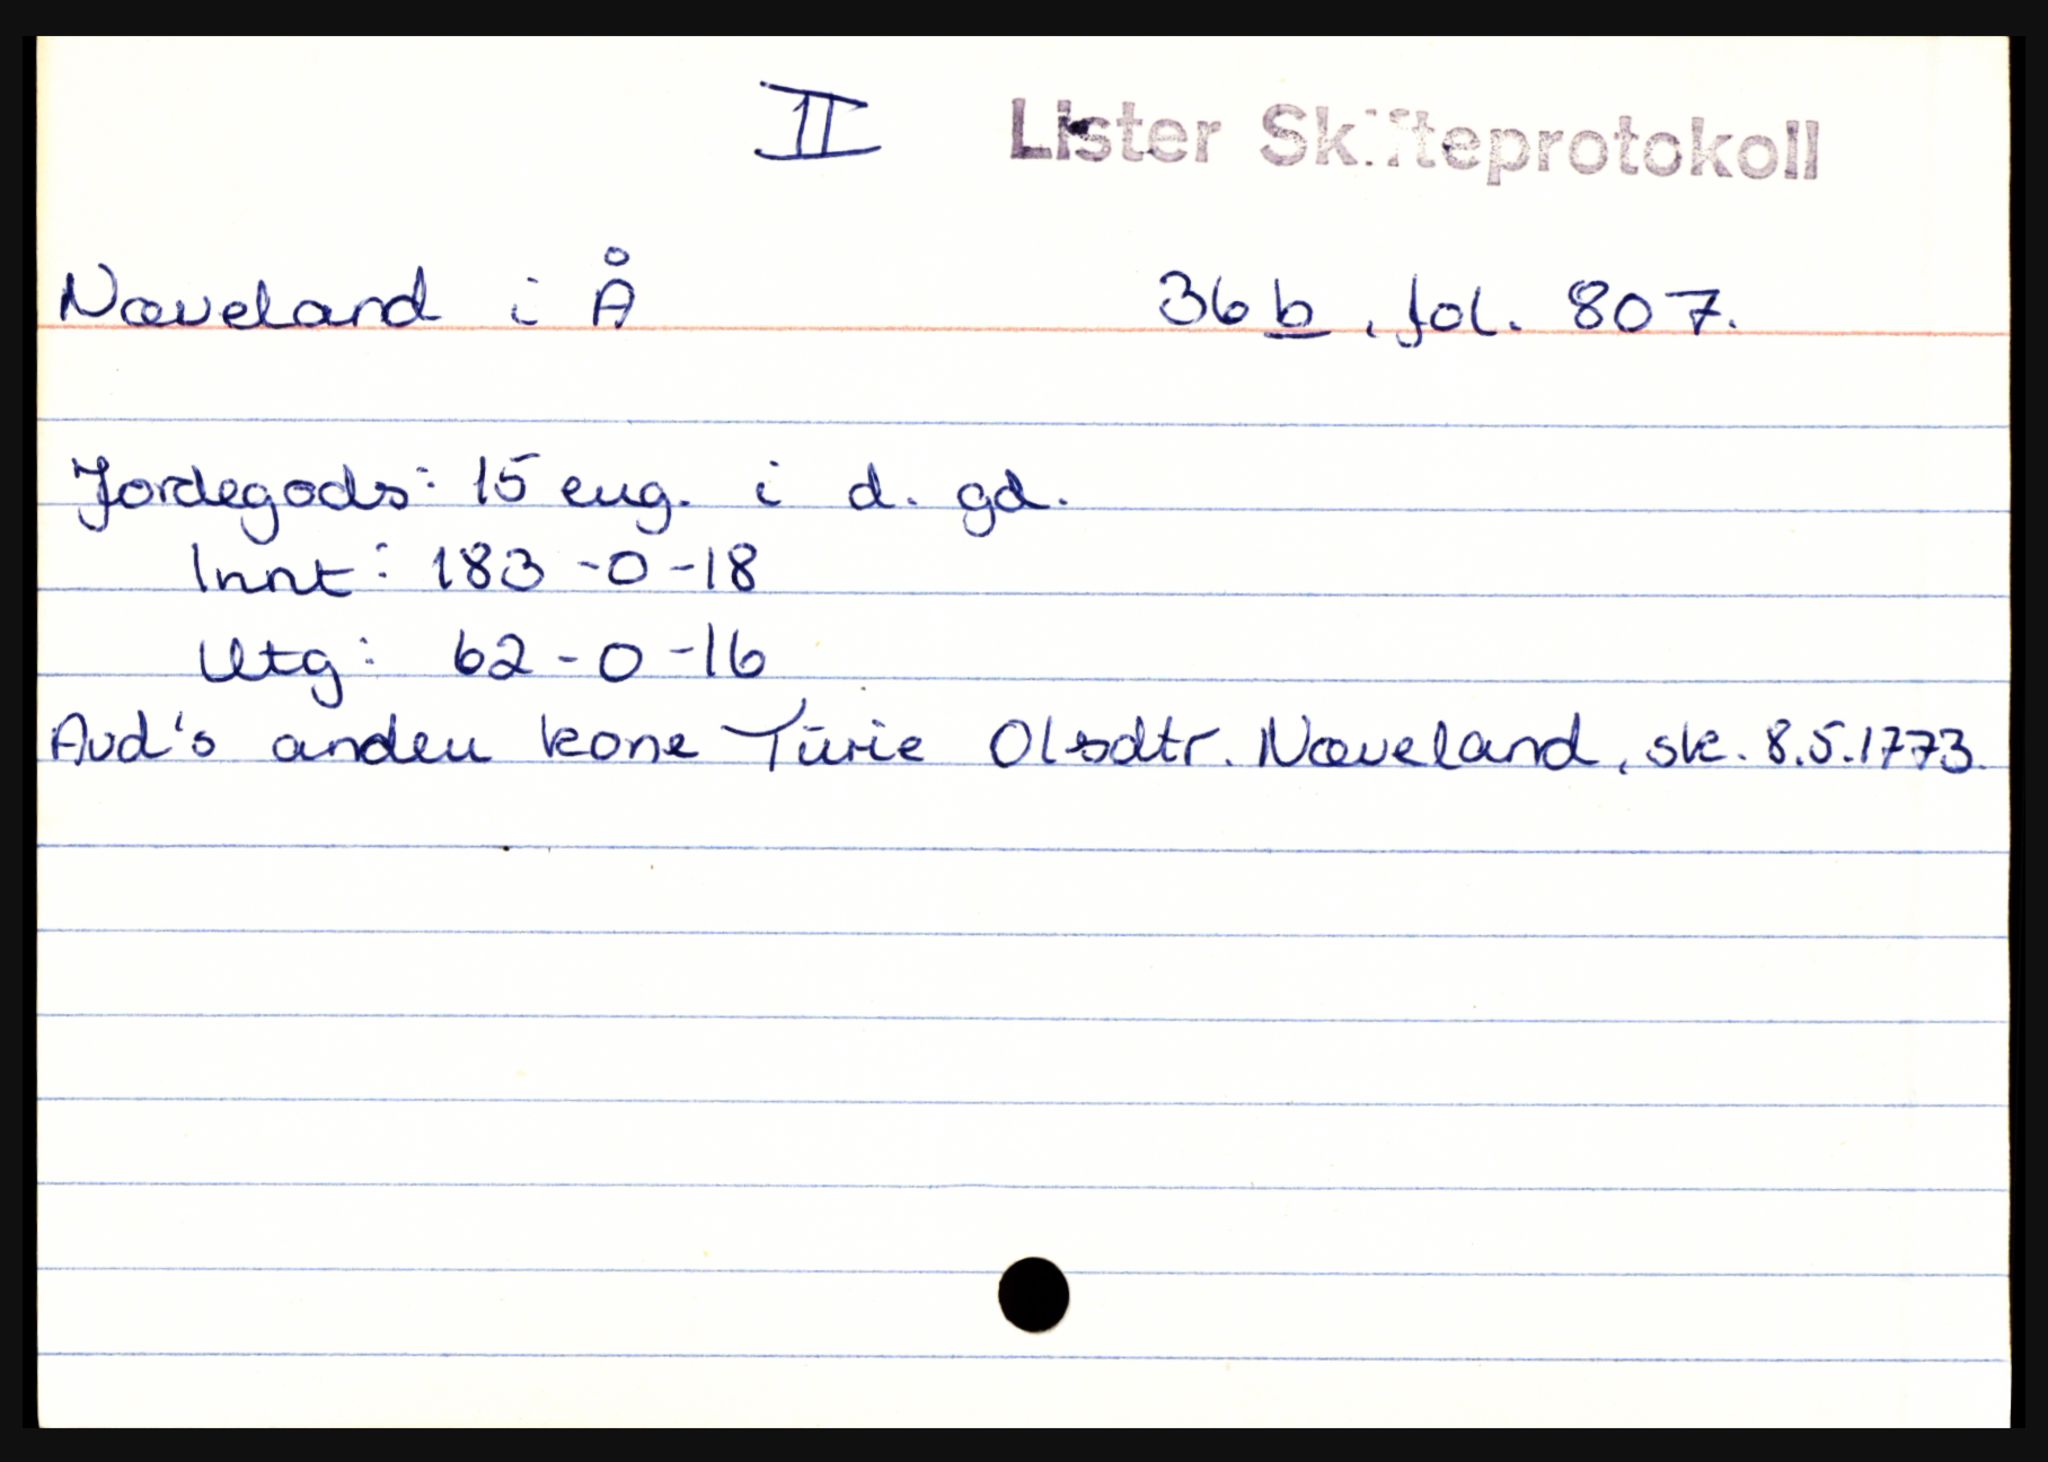 II Lister Skifteprotokoll
Næveland i Å 36 b, fol. 807.
Jordegods: 15 eng. i d. gd.
Innt: 183-0-18
Utg: 62-0-16
Aud's anden kone Türie Olsdtr. Næveland, sk. 8.5.1773.